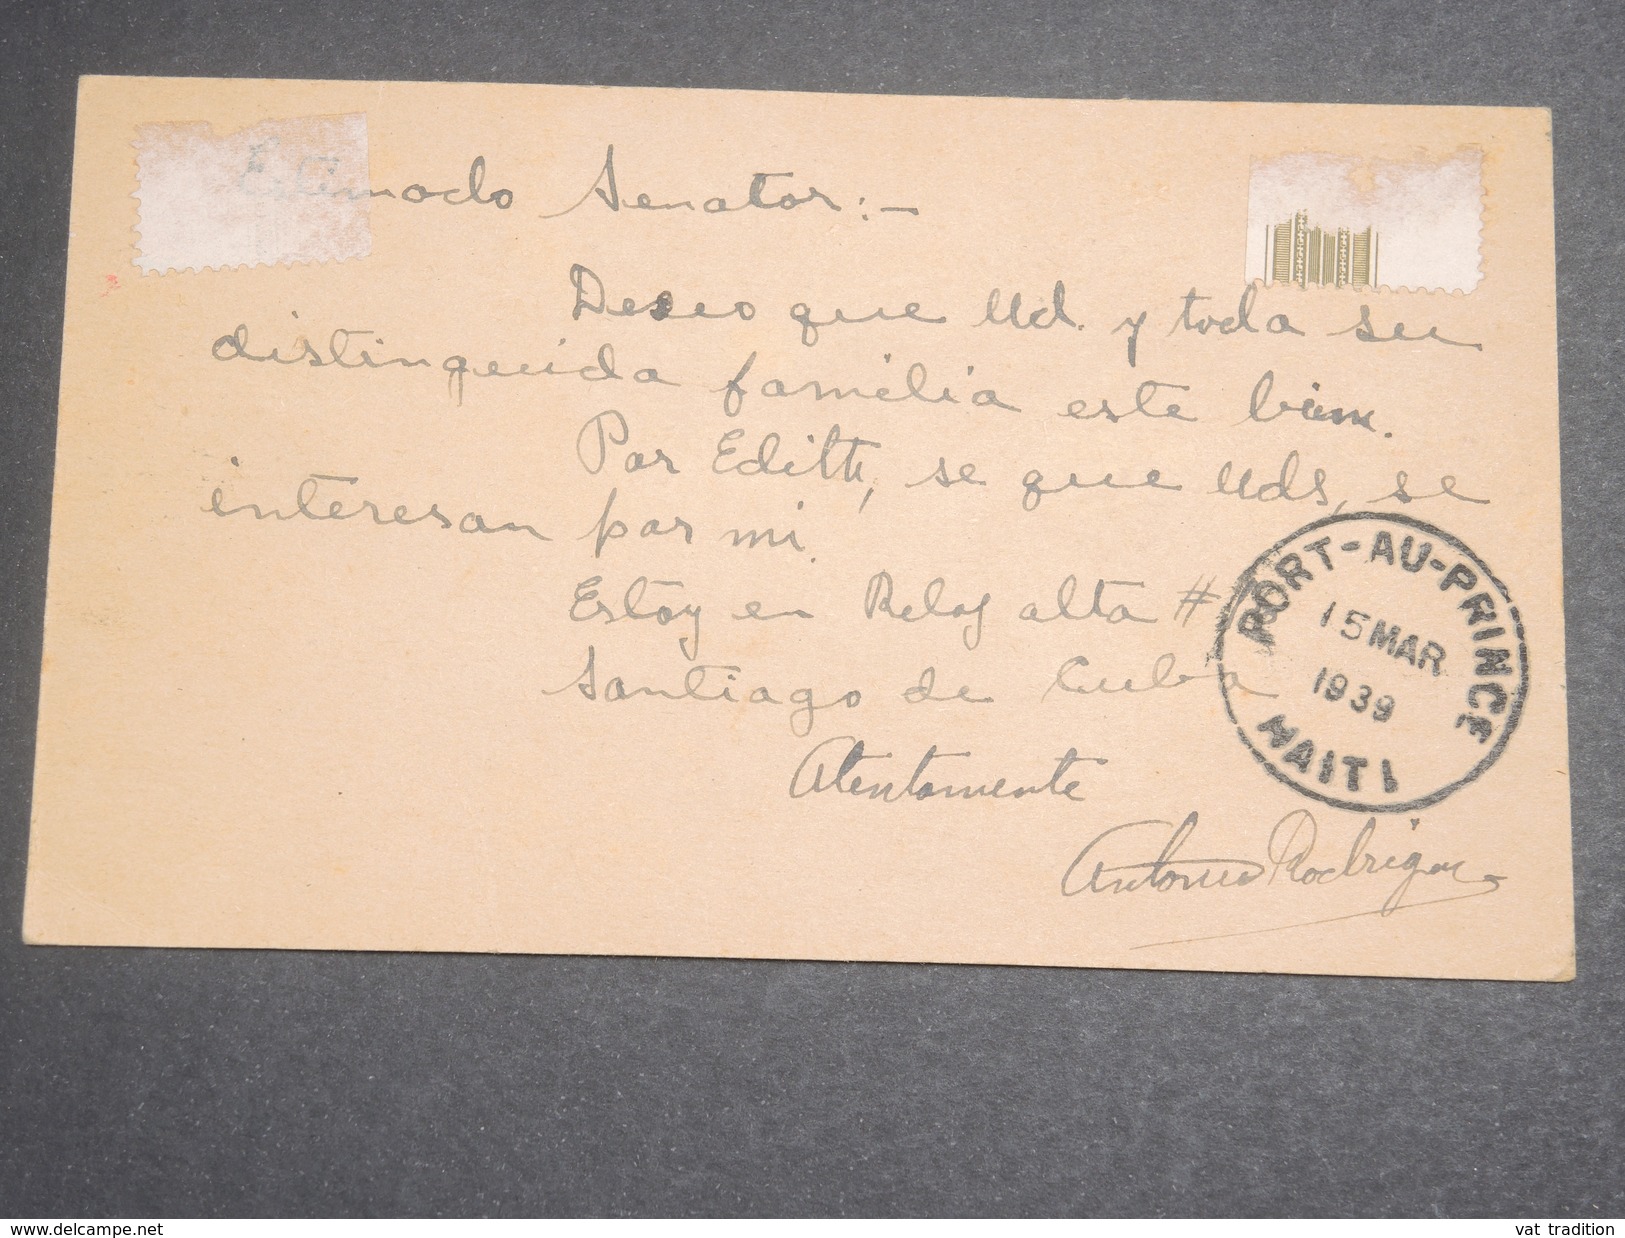 Estimado Senator:-
Deseo que Ud. y toda su
distinguida familia este bien.
Por Edith, se que Uds, se
interesan por mi.
Estoy en Reloj alta #
Santiago de Cuba
Atentamente
Antonio Rodriguez
PORT-AU-PRINCE
15 MAR
1939
HAITI
www.delcampe.net
vat tradition